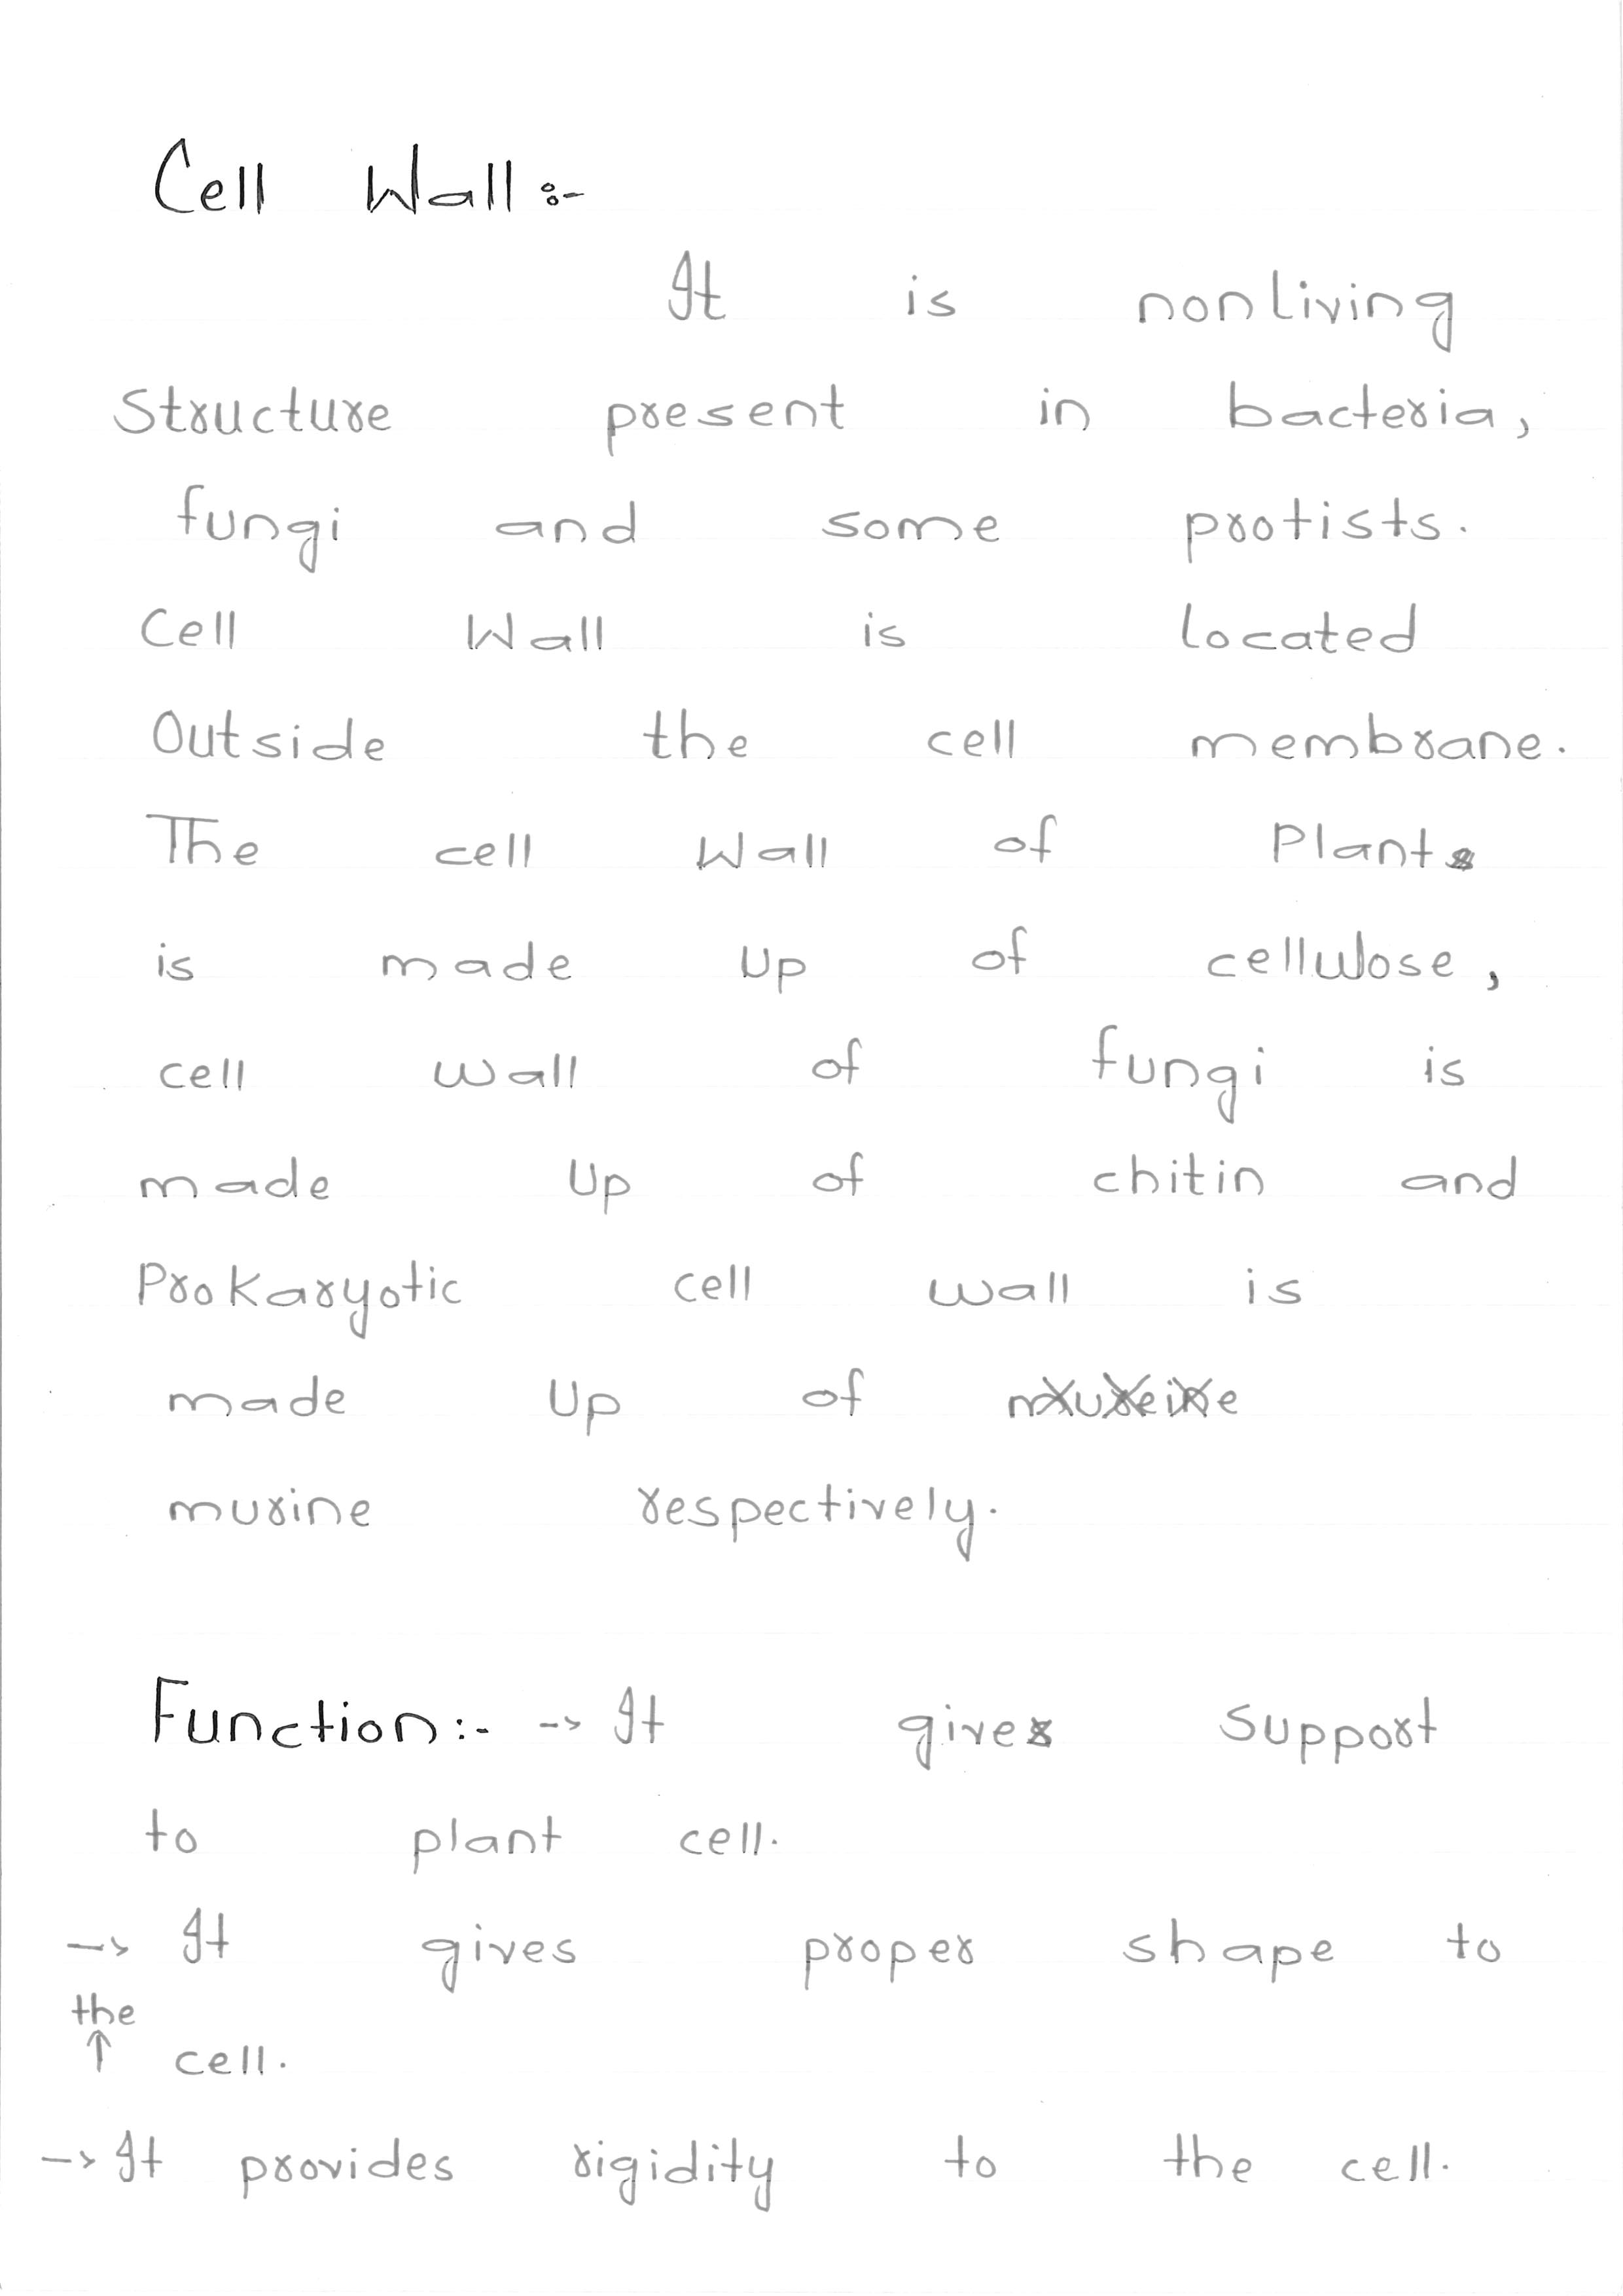 Cell Wall:-
It is nonliving
Structure present in bacteria,
fungi and some protists.
Cell Wall is located
Outside the cell membrane.
The cell Wall of Plants
is made Up of cellulose,
cell wall of fungi is
made Up of chitin and
Prokaryotic cell wall is
made Up of
murine respectively.
Function:- -> It gives support
to plant cell.
-> It gives proper shape to
the
↑ cell.
-> It provides rigidity to the cell.